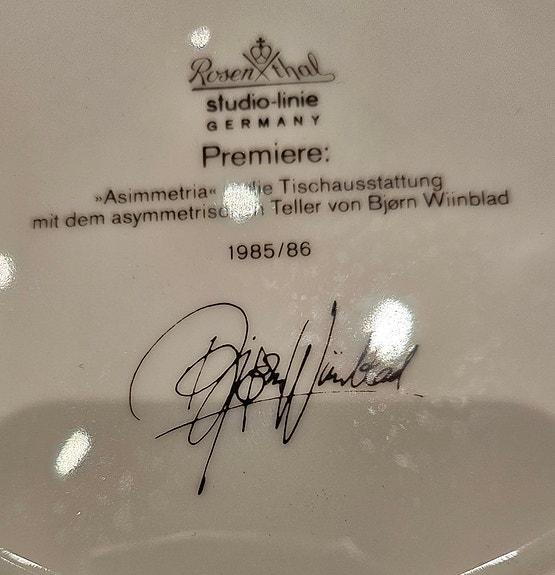 Rosenthal
studio-linie
GERMANY
Premiere:
»Asimmetria« die Tischausstattung
mit dem asymmetrischen Teller von Bjørn Wiinblad
1985/86
Bjørn Wiinblad